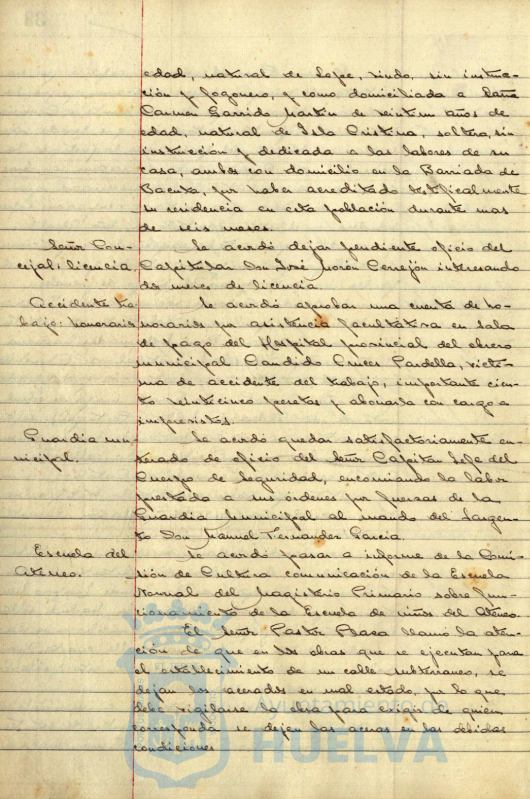 edad, natural de Lepe, viudo, sin instruc-
ción y fogonero, y como domiciliada a Doña
Carmen Garrido Martín de veintiun años de
edad, natural de Isla Cristina, soltera, sin
instrucción y dedicada a las labores de su
casa, ambos con domicilio en la Barriada de
Bacuta, por haber acreditado testificalmente
su residencia en esta población durante mas
de seis meses.
Señor Con-
cejal: licencia.
Se acordó dejar pendiente oficio del
Capitular Don José Morón Cerrejón interesando
dos meses de licencia
Accidente tra-
bajo: honorarios
Se acordó aprobar una cuenta de ho-
norarios por asistencia facultativa en sala
de pago del Hospital provincial del obrero
municipal Candido Cruces Pardella, vícti-
ma de accidente del trabajo, importante cien-
to veinticinco pesetas y abonarla con cargo a
imprevistos.
Guardia mu-
nicipal.
Se acordó quedar satisfactoriamente en-
terado de oficio del Señor Capitan Jefe del
Cuerpo de Seguridad, encomiando la labor
prestada a sus órdenes por fuerzas de la
Guardia Municipal al mando del Sargen-
to Don Manuel Fernandez Garcia.
Escuela del
Ateneo.
Se acordó pasar a informe de la Comi-
sión de Cultura comunicación de la Escuela
Normal del Magisterio Primario sobre fun-
cionamiento de la Escuela de niños del Ateneo.
El Señor Pastor Plaza llamó la aten-
ción de que en las obras que se ejecutan para
el establecimiento de un cable subterraneo, se
dejan los acerados en mal estado, por lo que
debe vigilarse la obra para exigir de quien
corresponda se dejen las aceras en las debidas
condiciones
HUELVA